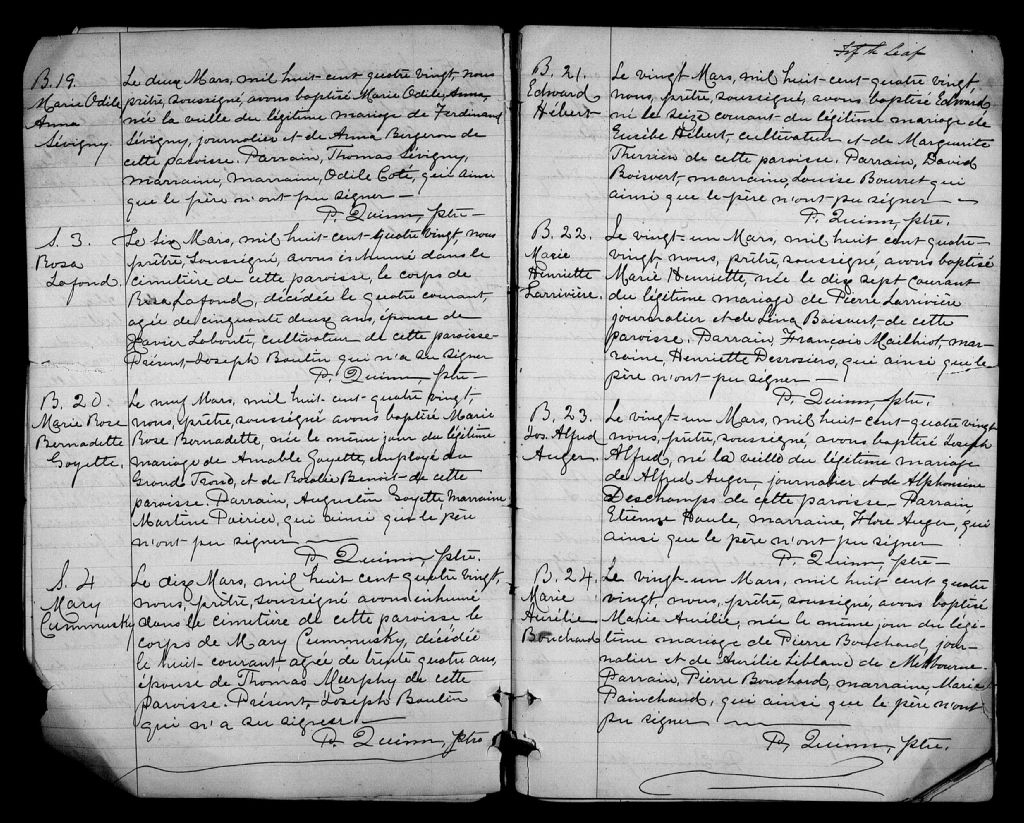 B. 19.
Marie Odile
Anna
Sévigny.
Le deux Mars, mil huit-cent-quatre vingt, nous
prêtre, soussigné, avons baptisé Marie Odile, Anna,
née la veille du légitime mariage de Ferdinand
Sévigny, journalier et de Anna Bergeron de
cette paroisse. Parrain, Thomas Sévigny,
marraine, marraine, Odile Cote, qui ainsi
que le père n'ont pu signer —
P. Quinn, ptre —
S. 3.
Rosa
Lafond.
Le six Mars, mil huit-cent-quatre vingt, nous
prêtre soussigné, avons inhumé dans le
cimitière de cette paroisse, le corps de
Rosa Lafond, décédée le quatre courant,
agée de cinquante deux ans, épouse de
Xavier Labonté, cultivateur de cette paroisse-
Présent, Joseph Boutin qui n'a su signer
P. Quinn, ptre —
B. 20.
Marie Rose
Bernadette
Goyette.
Le neuf Mars, mil huit cent quatre vingt,
nous, prêtre, soussigné avons baptisé Marie
Rose Bernadette, née le même jour du légitime
mariage de Amable Goyette, employé au
Grand Tronc, et de Rosalie Benoit de cette
paroisse. Parrain, Augustin Goyette, marraine
Martine Poirier, qui ainsi que le père
n'ont pu signer —
P. Quinn, ptre.
S. 4
Mary
Cummusky
Le dix Mars, mil huit cent quatre vingt,
nous, prêtre, soussigné avons inhumé
dans le cimetière de cette paroisse le
corps de Mary Cummusky, décédée
le huit courant agée de trente quatre ans,
épouse de Thomas Murphy de cette
paroisse. Présent, Joseph Boutin
qui n'a su signer —
P. Quinn, ptre
Fifth Leaf
B. 21.
Edward
Hébert.
Le vingt Mars, mil huit-cent-quatre vingt,
nous, prêtre, soussigné, avons baptisé Edward
né le seize courant du légitime mariage de
Eusèbe Hébert, cultivateur et de Marguerite
Therrien de cette paroisse. Parrain, David
Boisvert, marraine, Louise Bourret qui
ainsi que le père n'ont pu signer —
P. Quinn, ptre.
B. 22.
Marie
Henriette
Larrivière.
Le vingt-un Mars, mil huit cent quatre-
vingt, nous, prêtre, soussigné, avons baptisé
Marie Henriette, née le dix sept courant
du légitime mariage de Pierre Larrivière
journalier et de Lina Boisvert, de cette
paroisse. Parrain, François Mailhiot, mar-
raine, Henriette Desrosiers, qui ainsi que le
père n'ont pu signer —
P. Quinn, ptre.
B. 23.
Jos. Alfred
Auger.
Le vingt-un Mars, mil huit-cent-quatre vingt
nous, prêtre, soussigné, avons baptisé Joseph
Alfred, né la veille du légitime mariage
de Alfred Auger, journalier et de Alphonsine
Deschamps de cette paroisse — Parrain,
Etienne Houle, marraine, Flore Auger, qui
ainsi que le père n'ont pu signer
P. Quinn, ptre —
B. 24.
Marie
Aurélie
Bouchard
Le vingt-un Mars, mil huit cent quatre
vingt, nous, prêtre, soussigné, avons baptisé
Marie Aurélie, née le même jour du légi-
time mariage de Pierre Bouchard, jour-
nalier et de Aurélie Leblanc de Melbourne-
Parrain, Pierre Bouchard, marraine, Marie
Painchaud, qui ainsi que le père n'ont
pu signer —
P. Quinn, ptre.